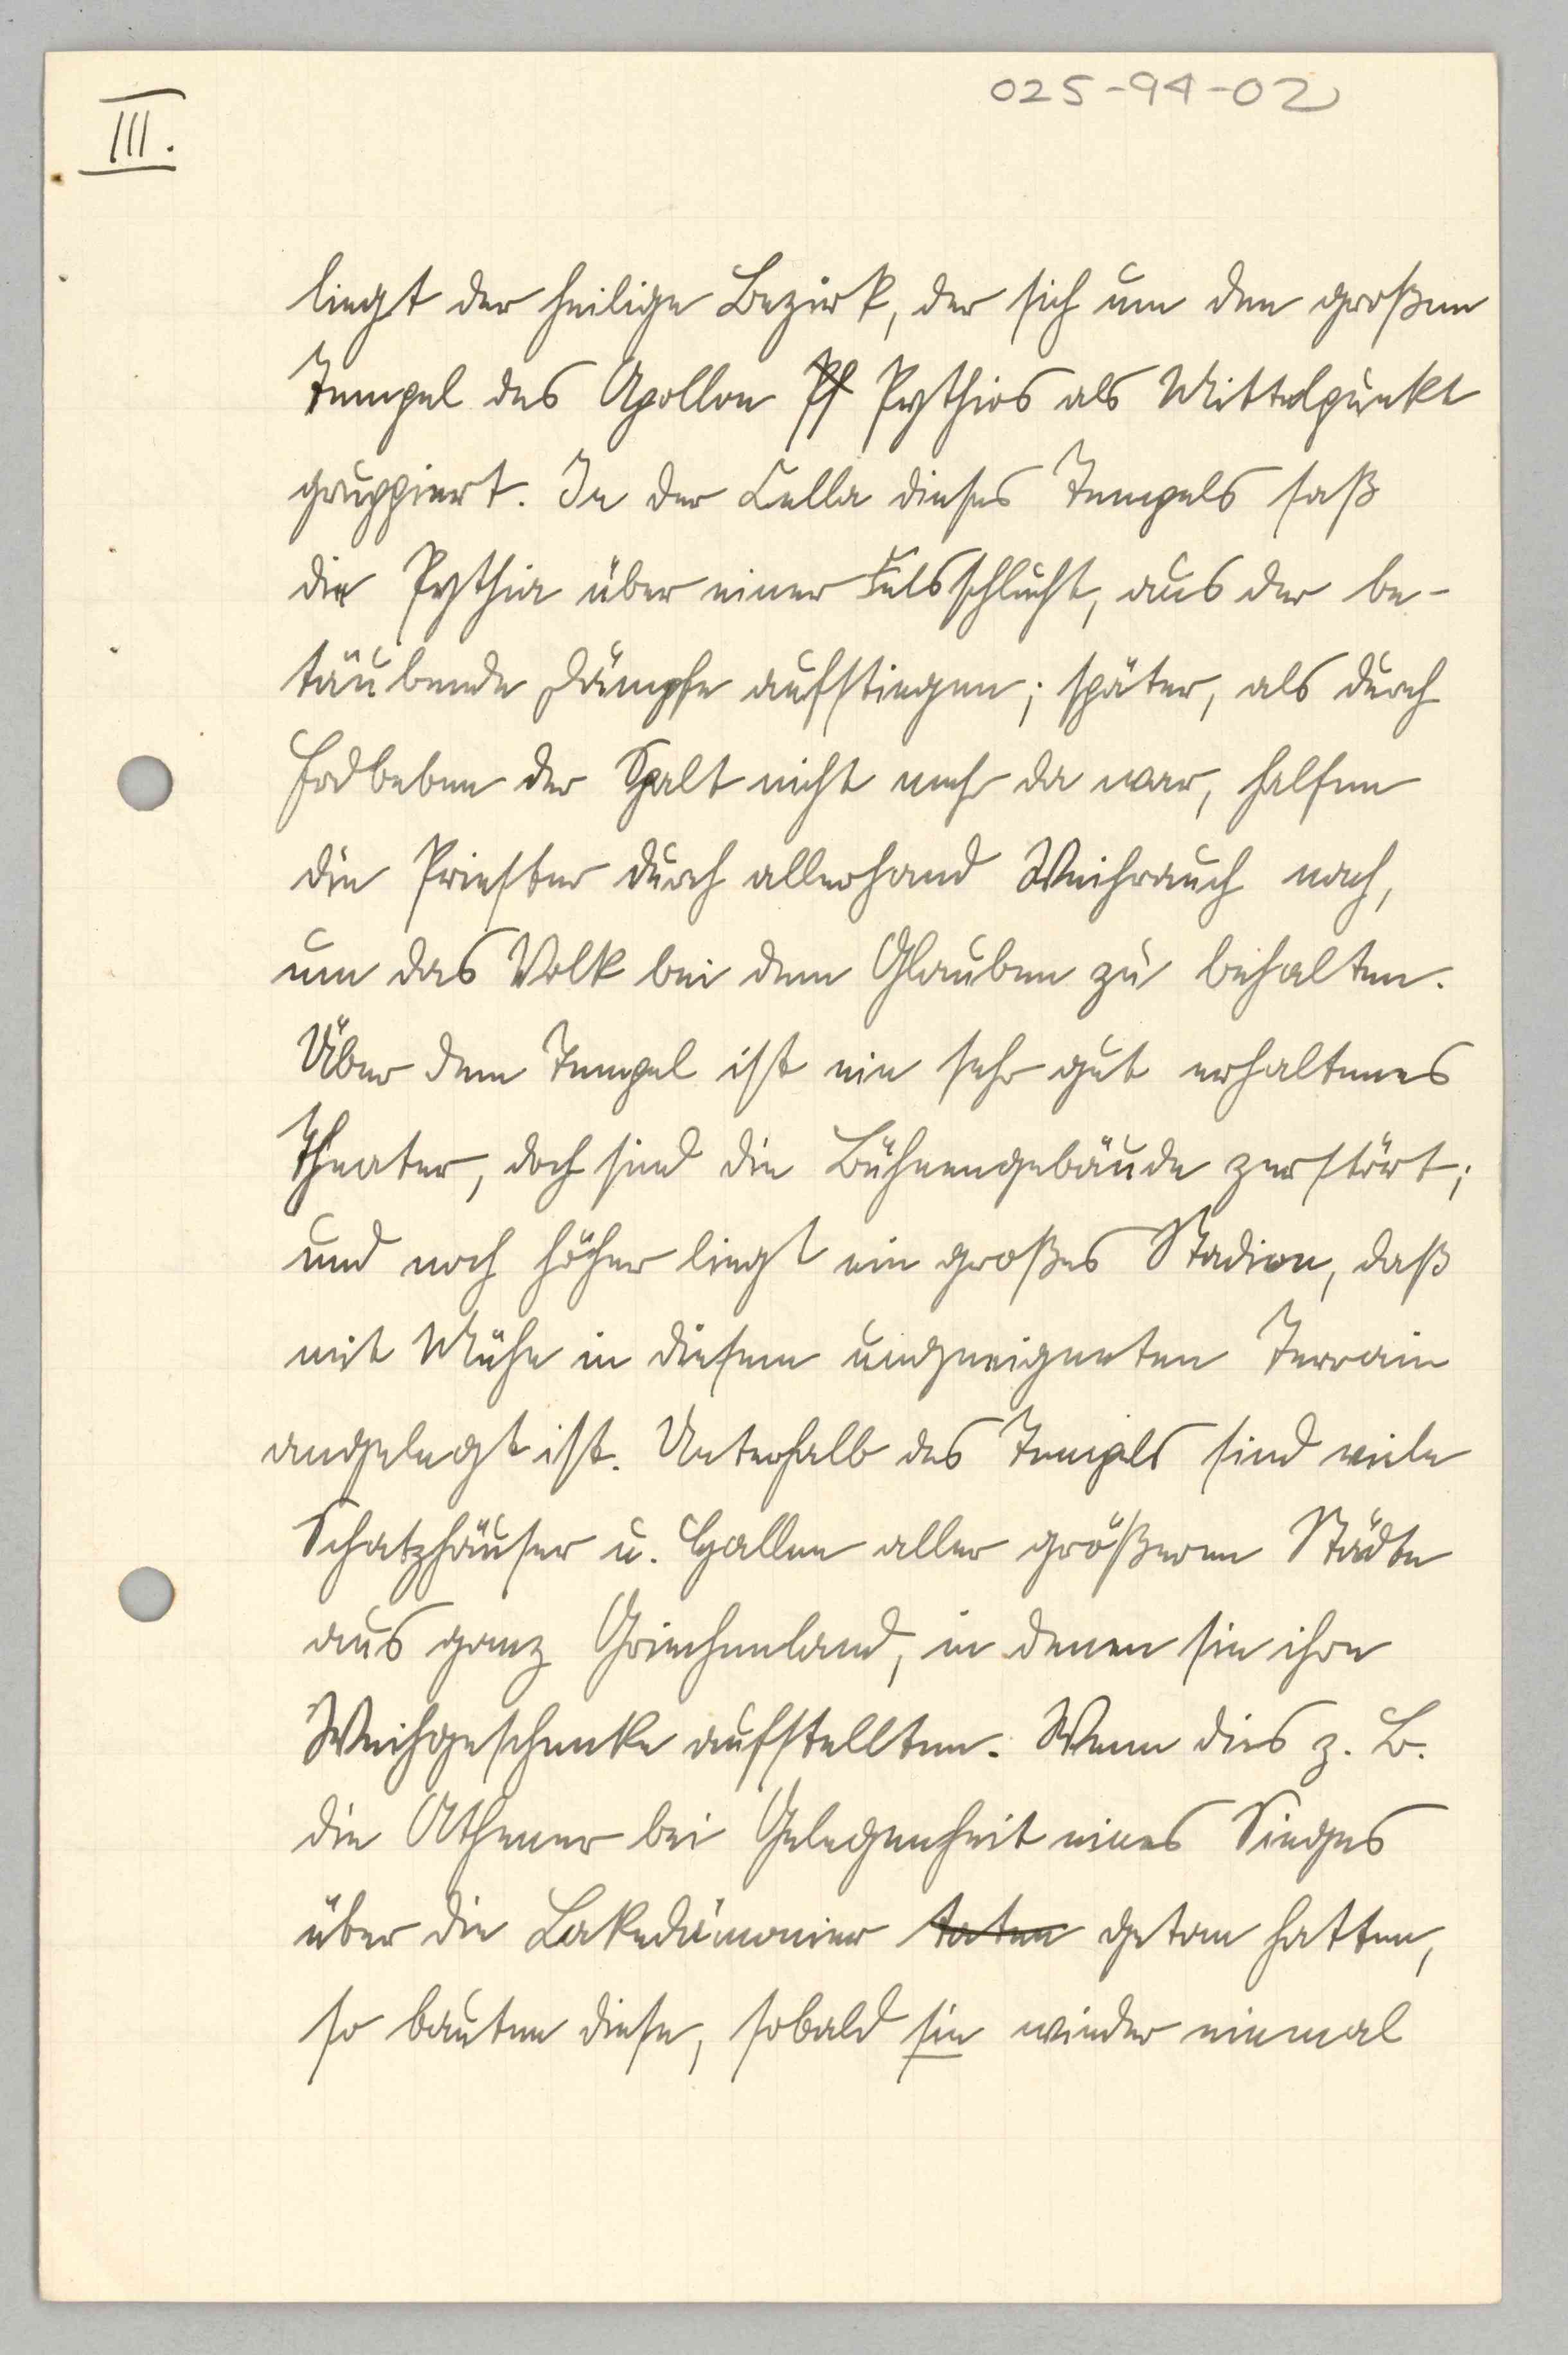 025-94-02
III.
liegt der heilige Bezirk, der sich um den großen
Tempel des Apollon Pf Pythios als Mittelpunkt
gruppiert. In der Cella dieses Tempels saß
die Pythia über einer Felsschlucht, aus der be-
täubende Dämpfe aufstiegen; später, als durch
Erdbeben der Spalt nicht mehr da war, halfen
die Priester durch allerhand Weihrauch nach,
um das Volk bei dem Glauben zu behalten.
Über dem Tempel ist ein sehr gut erhaltenes
Theater, doch sind die Bühnengebäude zerstört;
und noch höher liegt ein großes Stadion, daß
mit Mühe in diesem ungeeigneten Terrain
angelegt ist. Unterhalb des Tempels sind viele
Schatzhäuser u. Hallen aller größeren Städte
aus ganz Griechenland, in denen sie ihre
Weihgeschenke aufstellten. Wenn dies z. B.
die Athener bei Gelegenheit eines Sieges
über die Lakedämonier taten getan hatten,
so bauten diese, sobald sie wieder einmal